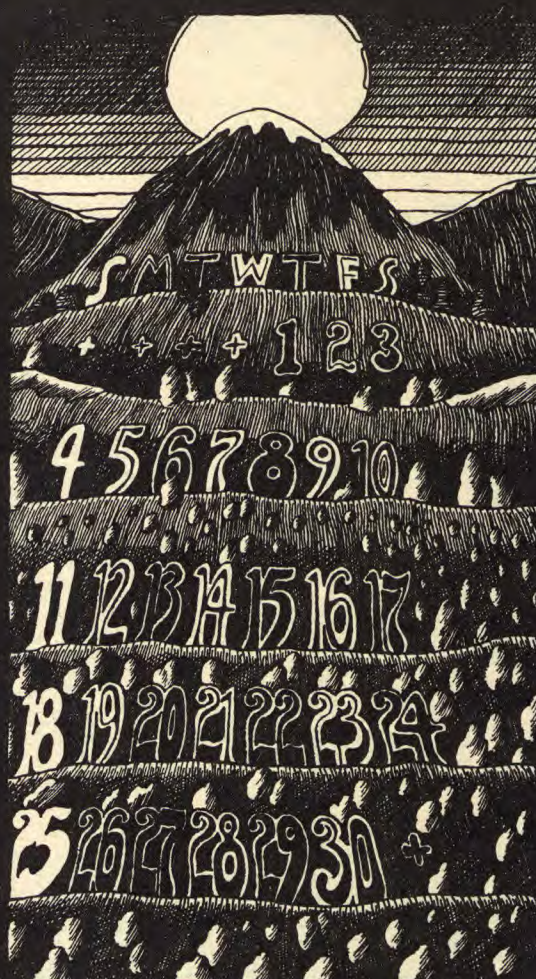 S M T W T F S
+ + + + 1 2 3
4 5 6 7 8 9 10
11 12 13 14 15 16 17
18 19 20 21 22 23 24
25 26 27 28 29 30 +